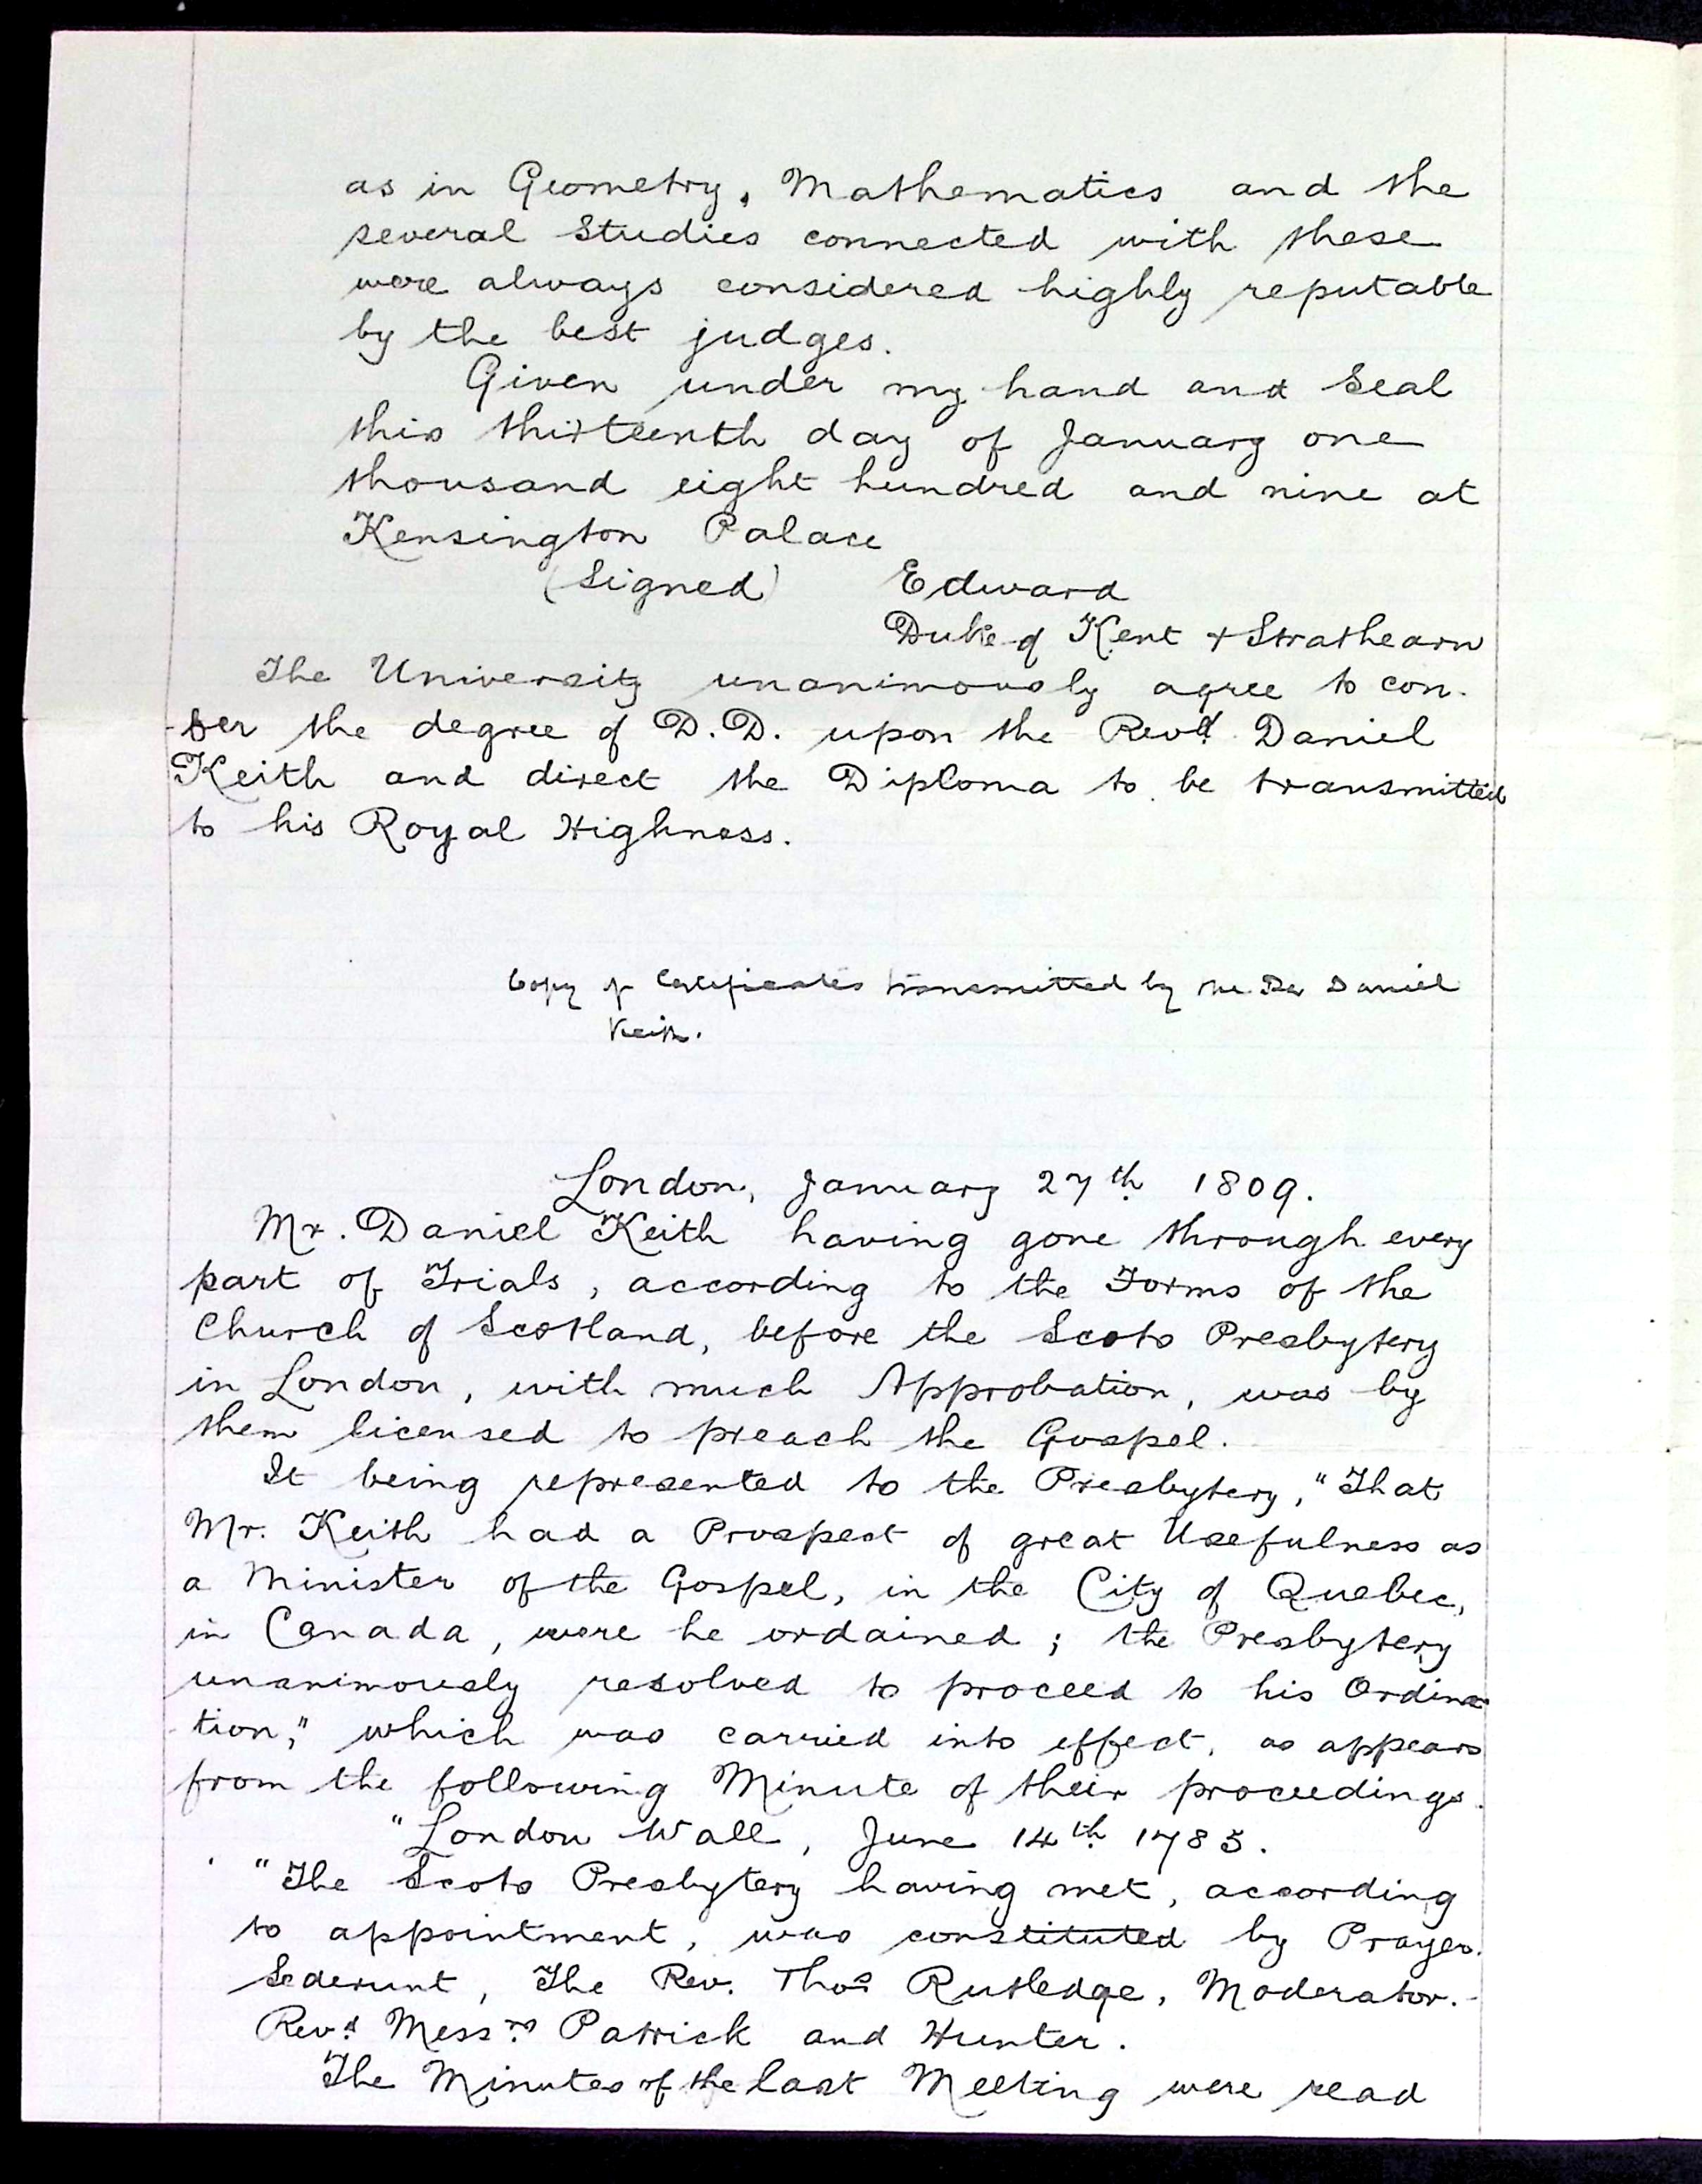 as in Geometry, Mathematics and the
several Studies connected with these
were always considered highly reputable
by the best judges.
Given under my hand and Seal
this thirteenth day of January one
thousand eight hundred and nine at
Kensington Palace
(Signed) Edward
Duke of Kent & Strathearn
The University unanimously agree to con-
-fer the degree of D.D. upon the Revd. Daniel
Keith and direct the Diploma to be transmitted
to his Royal Highness.
Copy of Certificates transmitted by the Daniel
Keith.
London, January 27th 1809.
Mr. Daniel Keith having gone through every
part of Trials, according to the Forms of the
Church of Scotland, before the Scots Presbytery
in London, with much Approbation, was by
them licensed to preach the Gospel.
It being represented to the Presbytery, "That
Mr. Keith had a Prospect of great Usefulness as
a Minister of the Gospel, in the City of Quebec,
in Canada, were he ordained; the Presbytery
unanimously resolved to proceed to his Ordina-
-tion," which was carried into effect, as appears
from the following Minute of their proceedings.
"London Wall, June 14th 1785.
"The Scots Presbytery having met, according
to appointment, was constituted by Prayer.
Sederunt, The Rev. Thos Rutledge, Moderator.-
Revd. Messrs Patrick and Hunter.
The Minutes of the last Meeting were read